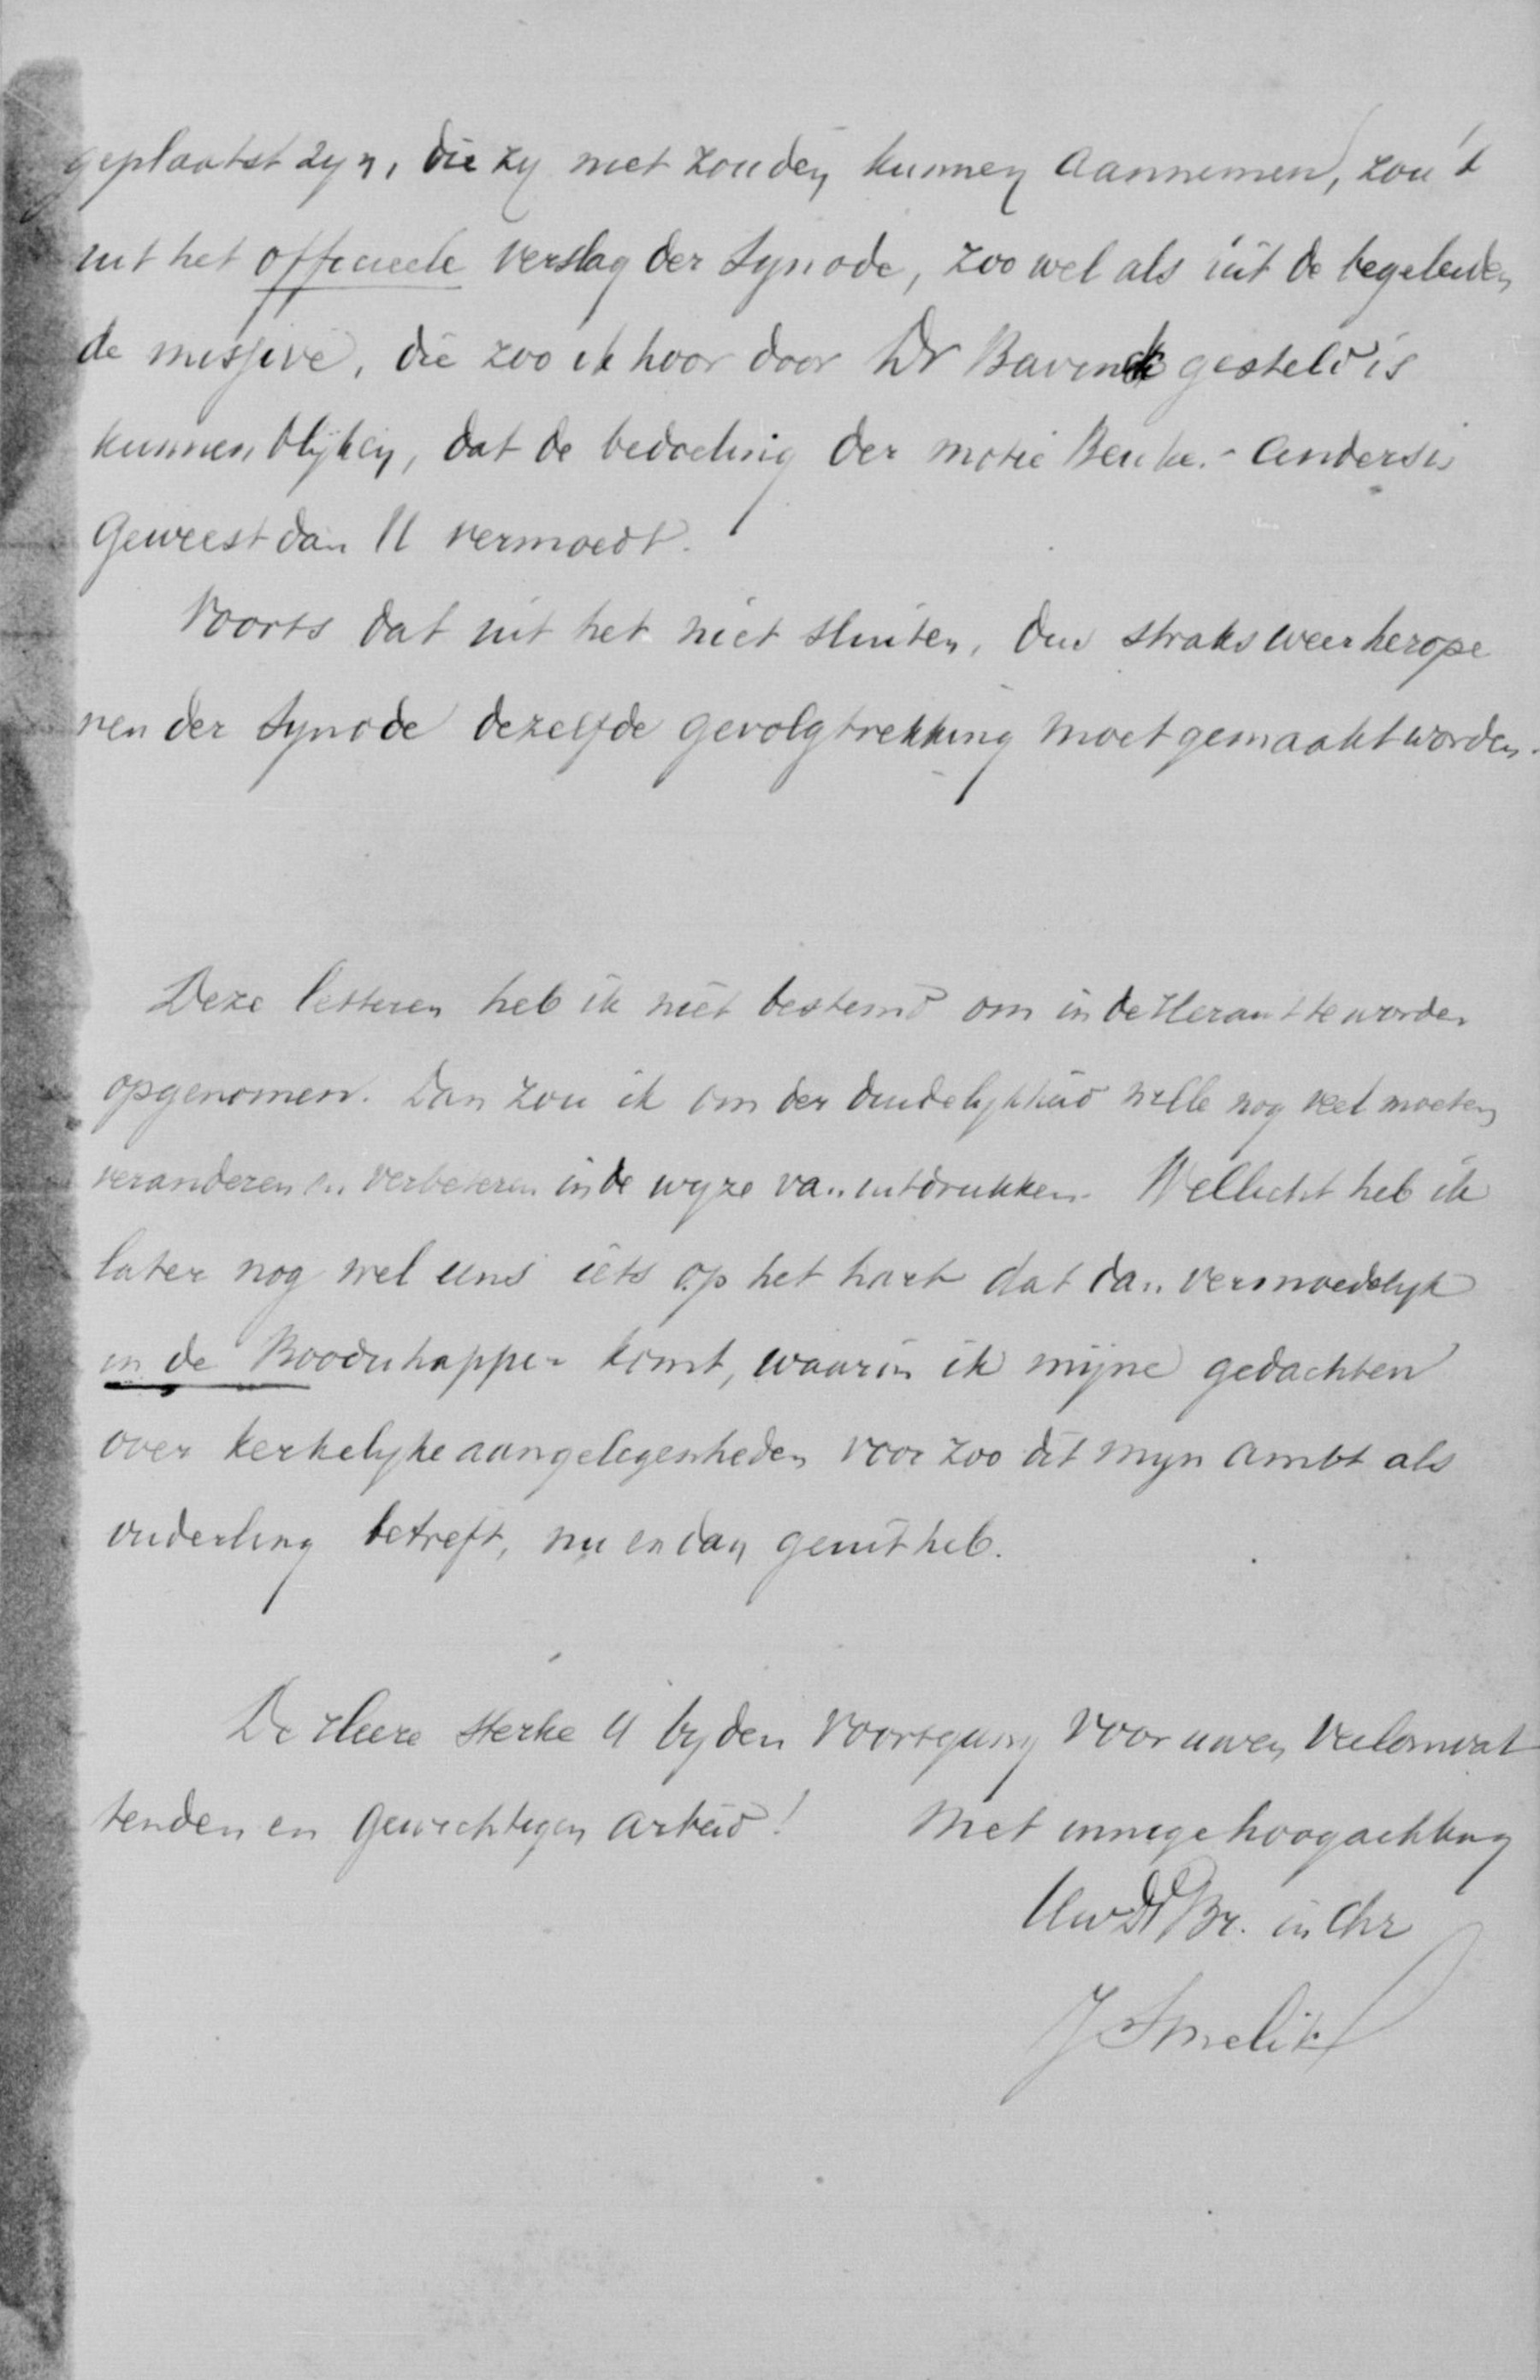 geplaatst zyn, die zy niet zouden kunnen aannemen, zou 't
uit het officieele verslag der Synode, zoo wel als uit de begeleiden
de missive, die zoo ik hoor door Dr Bavinck gesteld is
kunnen blijken, dat de bedoeling der motie Beuker anders is
geweest dan U vermoedt.
Voorts dat uit het niet sluiten, dus straks weer herope
nen der Synode dezelfde gevolgtrekking moet gemaakt worden.
Deze letteren heb ik niet bestemd om in de Heraut te worden
opgenomen. Dan zou ik om der duidelykheid wille nog veel moeten
veranderen en verbeteren in de wyze van uitdrukken. Wellicht heb ik
later nog wel eens iets op het hart dat dan vermoedelyk
in de Boodschapper komt, waarin ik mijne gedachten
over kerkelyke aangelegenheden voor zoo dit myn ambt als
ouderling betreft, nu en dan geuit heb.
De Heere sterke U by den voortgang voor uwen veelomvat
tenden en gewichtigen arbeid! Met innige hoogachting
Uw Dr. in Chr
J Smelik